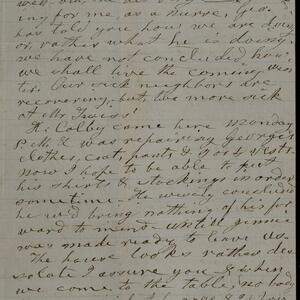 ing for me as a nurse, Geo.
has told you how we are doing
or, rather what he is doing.
we have not concluded how
we shall live the coming win
ter. Our sick neighbors are
recovering, but two more sick
at Mr
Colby came here Monday
P.M. & was repairing George's
clothes, coats, pants &
now I hope to be able to put
his shirts & stockings in order
sometime. He concluded
he would bring nothing of his for
ward to mend untill Jennie
was made ready to leave us.
The house looks rather des
solate I assure you & when
we come to the table, no body